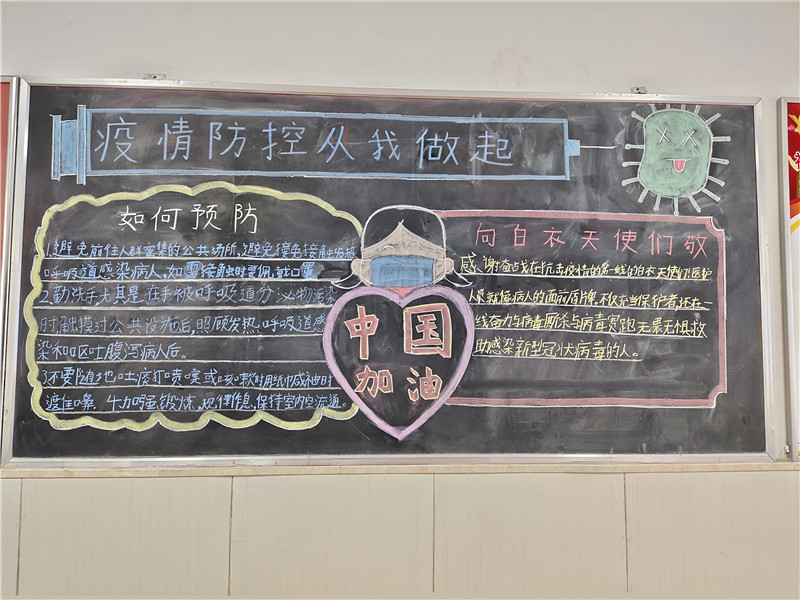 疫情防控从我做起
如何预防
1.避免前往人群密集的公共场所,避免接触发热
呼吸道感染病人,如需接触时要佩戴口罩
2.勤洗手尤其是在手被呼吸道分泌物污染
时触摸过公共设施后,照顾发热.呼吸道感
染和呕吐腹泻病人后。
3.不要随地吐痰打喷嚏或咳嗽时用纸巾或袖
遮住鼻、加强锻炼,规律作息,保持室内空流通。
中国
加油
向白衣天使们敬
感谢奋战在抗击疫情的第一线的白衣天使们!医护
人员就像病人的面前盾牌,不仅充当保护者,还在一
线奋力与病毒厮杀与病毒赛跑无畏无惧救
助感染新型冠状病毒的人。